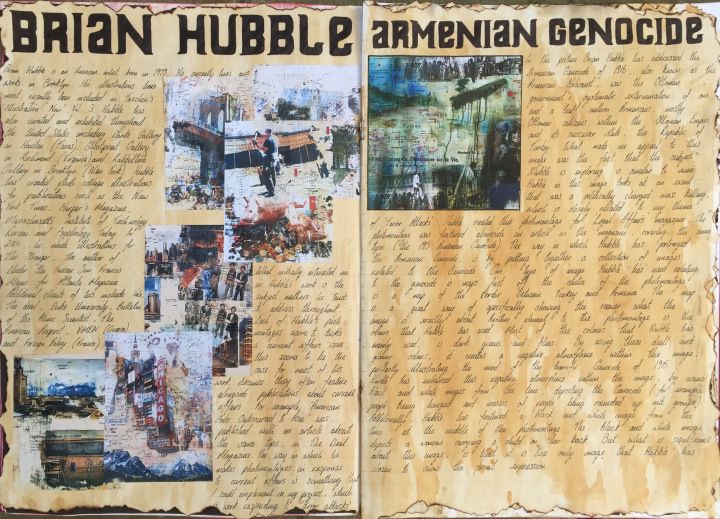 BRIAN HUBBLE
Brian Hubble is an American artist born in 1978. He currently lives and
works in Brooklyn. His illustrations have
recently been included in Taschen's
Illustration Now. Vol. 3. Hubble has
also curated and exhibited throughout
the United States including Gallery
in Houston (Texas), Ghostprint Gallery
in Richmond (Virginia) and
Gallery in Brooklyn (New York). Hubble
has created photo collage illustrations
for publications such as the New
York Times, Harper's Magazine,
Massachusetts Institute of Technology,
and Psychology Today. In
2006, he made illustrations for
The the author of
Under the Tuscan Sun Frances
Mayes for Atlanta Magazine.
Additional clients of his include
Duke University, Bulletin
of the Atomic Scientist,
American Prospect,
and Foreign Policy (France).
What initially interested me
in Hubble's work is the
subject matters he tries
to address throughout.
Each of Hubble's photo-
montages seem to tackle
a current affairs issue
that seems to be the
case for most of his
work because they often feature
alongside publications about current
affairs. For example, American
Jobs Outsourced to Asia was
published with an article about
the same topic in The Deal
Magazine. The way in which he
makes photomontages in response
to current affairs is something that
I could implement in my project, which
is work responding to terror attacks.
ARMENIAN GENOCIDE
In the picture Brian Hubble has addressed the
Armenian Genocide of 1915, also known as the
Armenian Holocaust, was the Ottoman
government's systematic extermination of one
and a half million Armenians, mostly
Ottoman citizens within the Ottoman Empire
and its successor state, the Republic of
Turkey. What made me appeal to this
image was the fact that the subject
Hubble is exploring is similar to mine.
Hubble in this image looks at an issue
that was a politically charged mass killing,
which is closely related to my theme
of Terror Attacks. Hubble created this photomontage for Legal Affairs magazine. The
photomontage was featured alongside an article in the magazine covering the same
topic (the 1915 Armenian Genocide). The way in which Hubble has portrayed
the Armenian Genocide is by putting together a collection of images
related to the Genocide. One type of image Hubble has used relating
to the genocide is maps. Part of the photomontage
is a map of the border between Turkey and Armenia. The map
is a great way of specifically showing the viewer what the
image is exactly about. Another element to the photomontage is the
colours that Hubble has used. Most of the colours that Hubble has
mainly used is dark greens and blues. By using these dull and
gloomy colours, it creates a negative atmosphere within the image,
perfectly illustrating the mood of the horrific Genocide of 1915.
Hubble has enhanced this negative atmosphere within the image by using
black and white images from the time depicting the Genocide, for example,
people being hanged and masses of people being rounded up into groups.
Additionally, Hubble has featured a black and white image from the
time at the middle of the photomontage. The black and white image
depicts a woman carrying a child on her back. But what is significant
about this image is that it is the only image that Hubble has
chosen to show the facial expression.